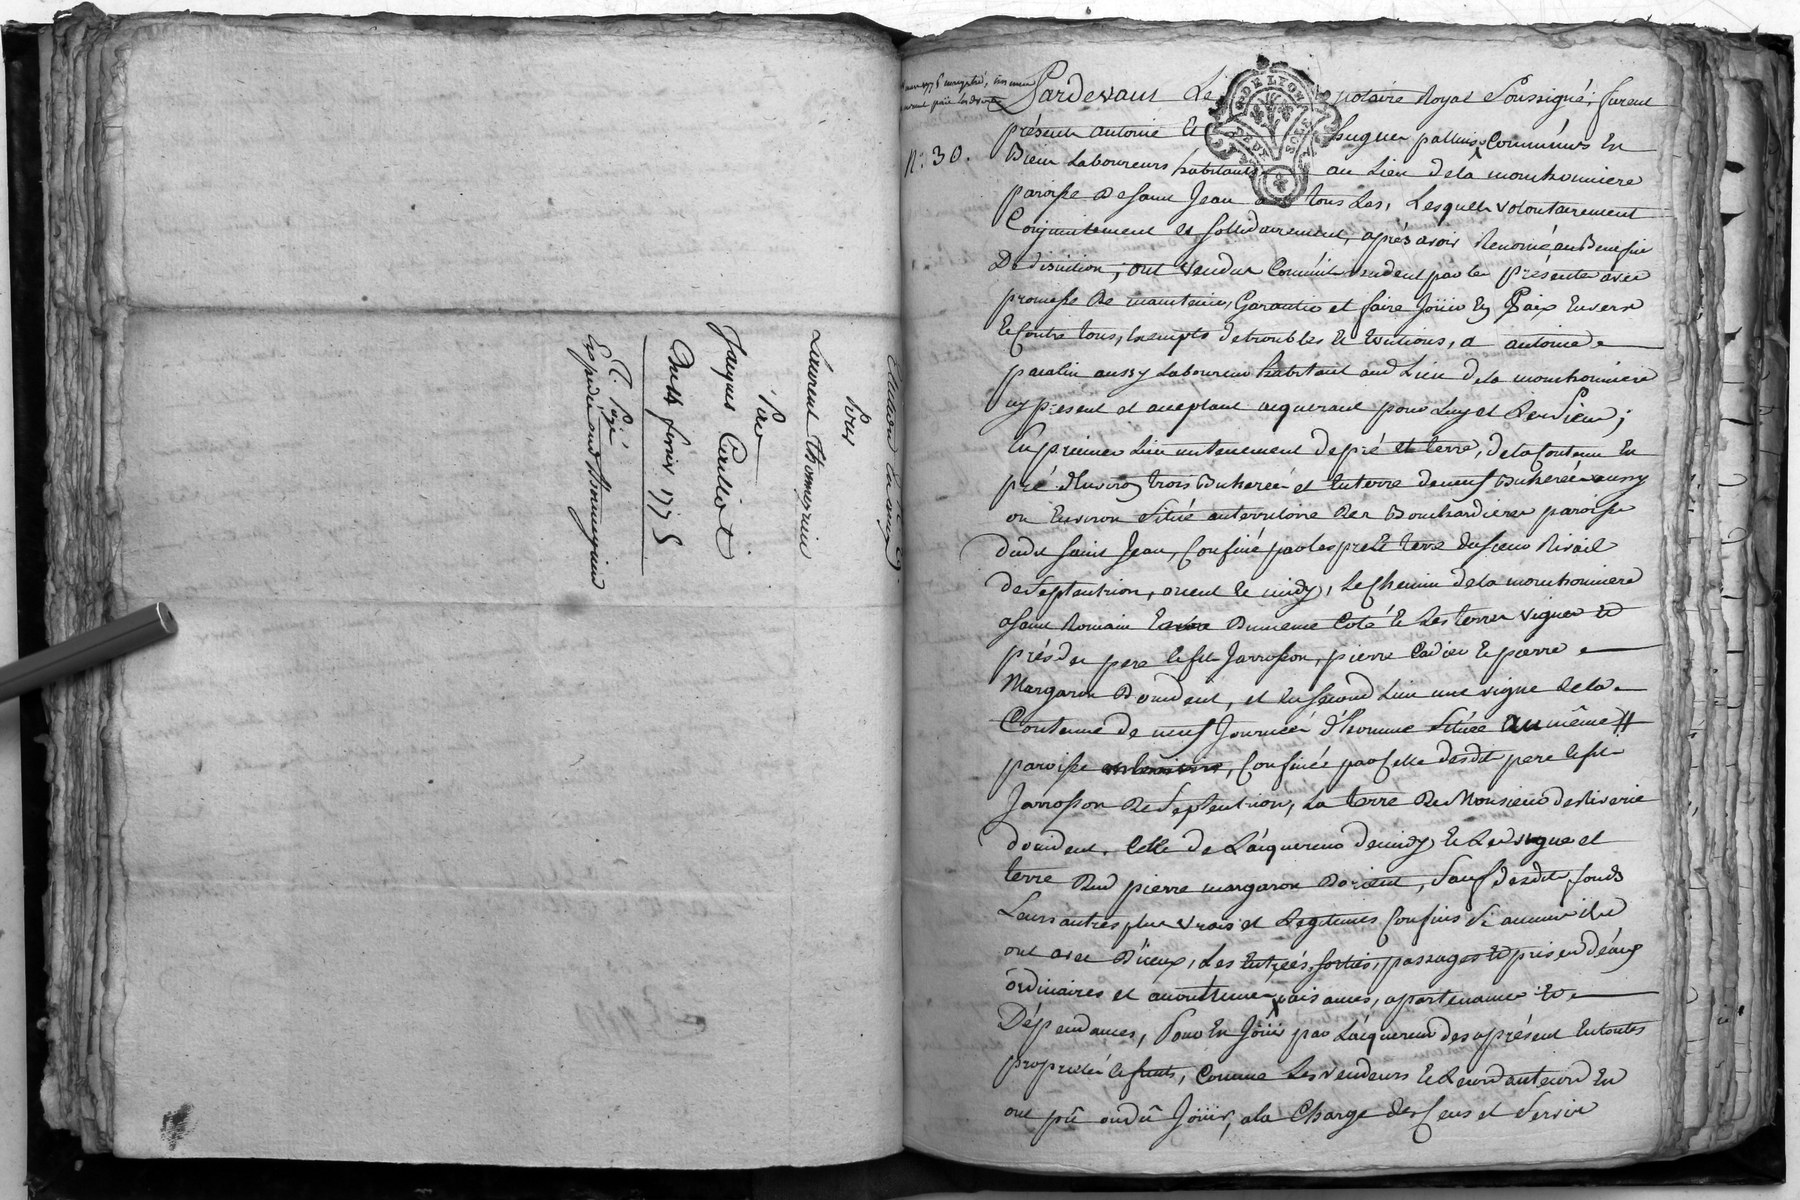 Election
Pour
Laurent Thonnerieu
Par
Jacques Cailliot
Du 14 fevrier 1775
C. Papé
Expedié aud Thonnerieu
N: 30.
DE LYON
Pardevant Le notaire Royal Soussigné; furent
présents antoine et hugues communs En
Biens Laboureurs habitants au Lieu dela mouchonniere
paroisse de saint Jean a tous Les, Lesquels volontairement
Conjointement et sollidairement, après avoir Renoncé au Benefice
De division, ont vendus Comm'ils vendent par les présentes avec
promesse de maintenir, Garantir et faire Joüir En Paix Envers
Et Contre tous, Exempts de troubles Et Evictions, a antoine
paralin aussy Laboureur habitant aud Lieu dela mouchonniere
icy present et acceptant acquerant pour Luy et Les siens;
En premier Lieu un tenement de pré et terre, dela Contenue En
pré d'Environ trois Bicherées et En terre de neuf Bicherées aussy
ou Environ Situé au territoire des Bouchardieres paroisse
dudit saint Jean, Confiné par les pré et terre du sieur Rivail
de septentrion, orient et midy, Le Chemin dela mouchonniere
a saint Romain Du même Coté et Les terres vignes et
prés des pere et fils Jarrosson, pierre Cadier et pierre
Margaron D'occident, et En second Lieu une vigne dela
Contenue de neuf Journées d'homme Située au même
paroisse, Confinée par Celle desdits pere et fils
Jarrosson de septentrion, La terre de Monsieur de Riverie
d'occident, Celle de L'acquereur de midy Et Les vigne et
terre dud pierre margaron D'orient, Sauf desdits fonds
Leurs autres plus vrais et Légitimes Confins Si aucuns ils
ont avec Eux, Les Entrées, sorties, passages et prises d'eaux
ordinaires et accoutumés, aisances, apartenances Et
Dépendances, Pour En Joüir par L'acquereur des apresent En toutes
propriétés et fruits, Comme Les vendeurs Et Leurs auteurs En
ont pû ou dû Joüir, a la Charge des Cens et Servis